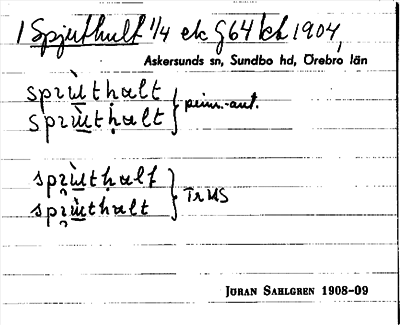 1 Spjuthult 1/4 ek G64 ek 1904,
Askersunds sn, Sundbo hd, Örebro län
sprùthalt
sprùthalt
sprùthalt
TrUS
sprùthalt
JÖRAN SAHLGREN 1908-09